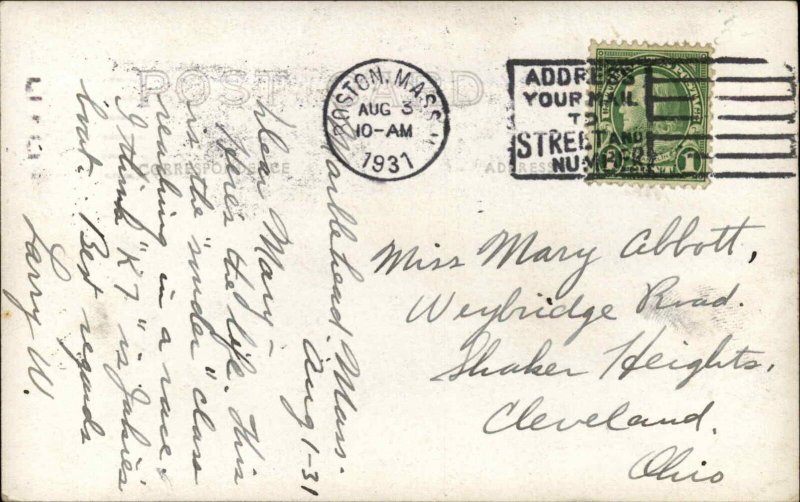 POST CARD
CORRESPONDENCE
ADDRESS
BOSTON, MASS.
AUG 3
10-AM
1931
ADDRESS
YOUR MAIL
TO
STREET AND
NUMBER
Marblehead, Mass.
Aug 1-31
Dear Mary -
Here's the life. This
is the "under" class
reaching in a race.
I think "K7" is Julie's
boat. Best regards
Larry W.
Miss Mary Abbott,
Weybridge Road.
Shaker Heights,
Cleveland,
Ohio